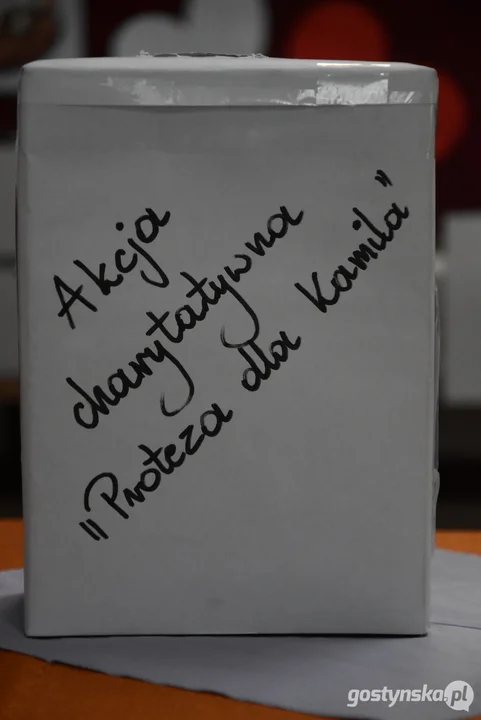 Akcja
charytatywna
"Proteza dla Kamila"
gostynska.pl